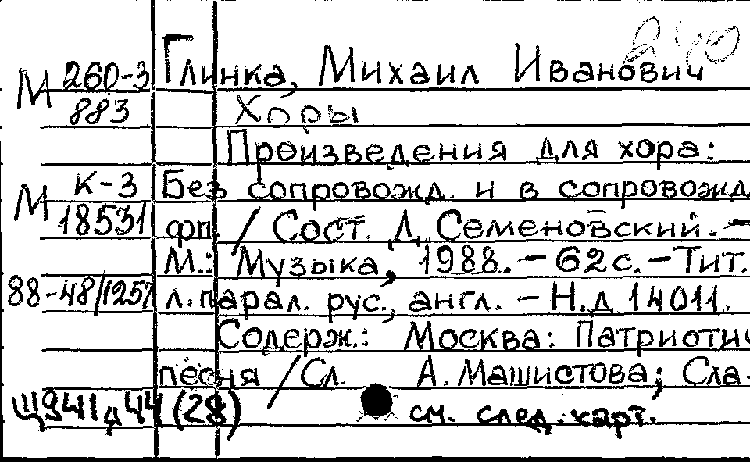 Глинка, Михаил Иванович
М 260-3
883
Хоры
Произведения для хора:
М К-3
18531
Без сопровожд. и в сопровожд.
фп. / Сост. Л. Семеновский. –
М.: Музыка, 1988. – 62 с. – Тит.
88-48/1257
л. парал. рус., англ. – Н.д 14011.
Содерж.: Москва: Патриотич
песня / Сл. А. Машистова; Сла-
см. след. карт.